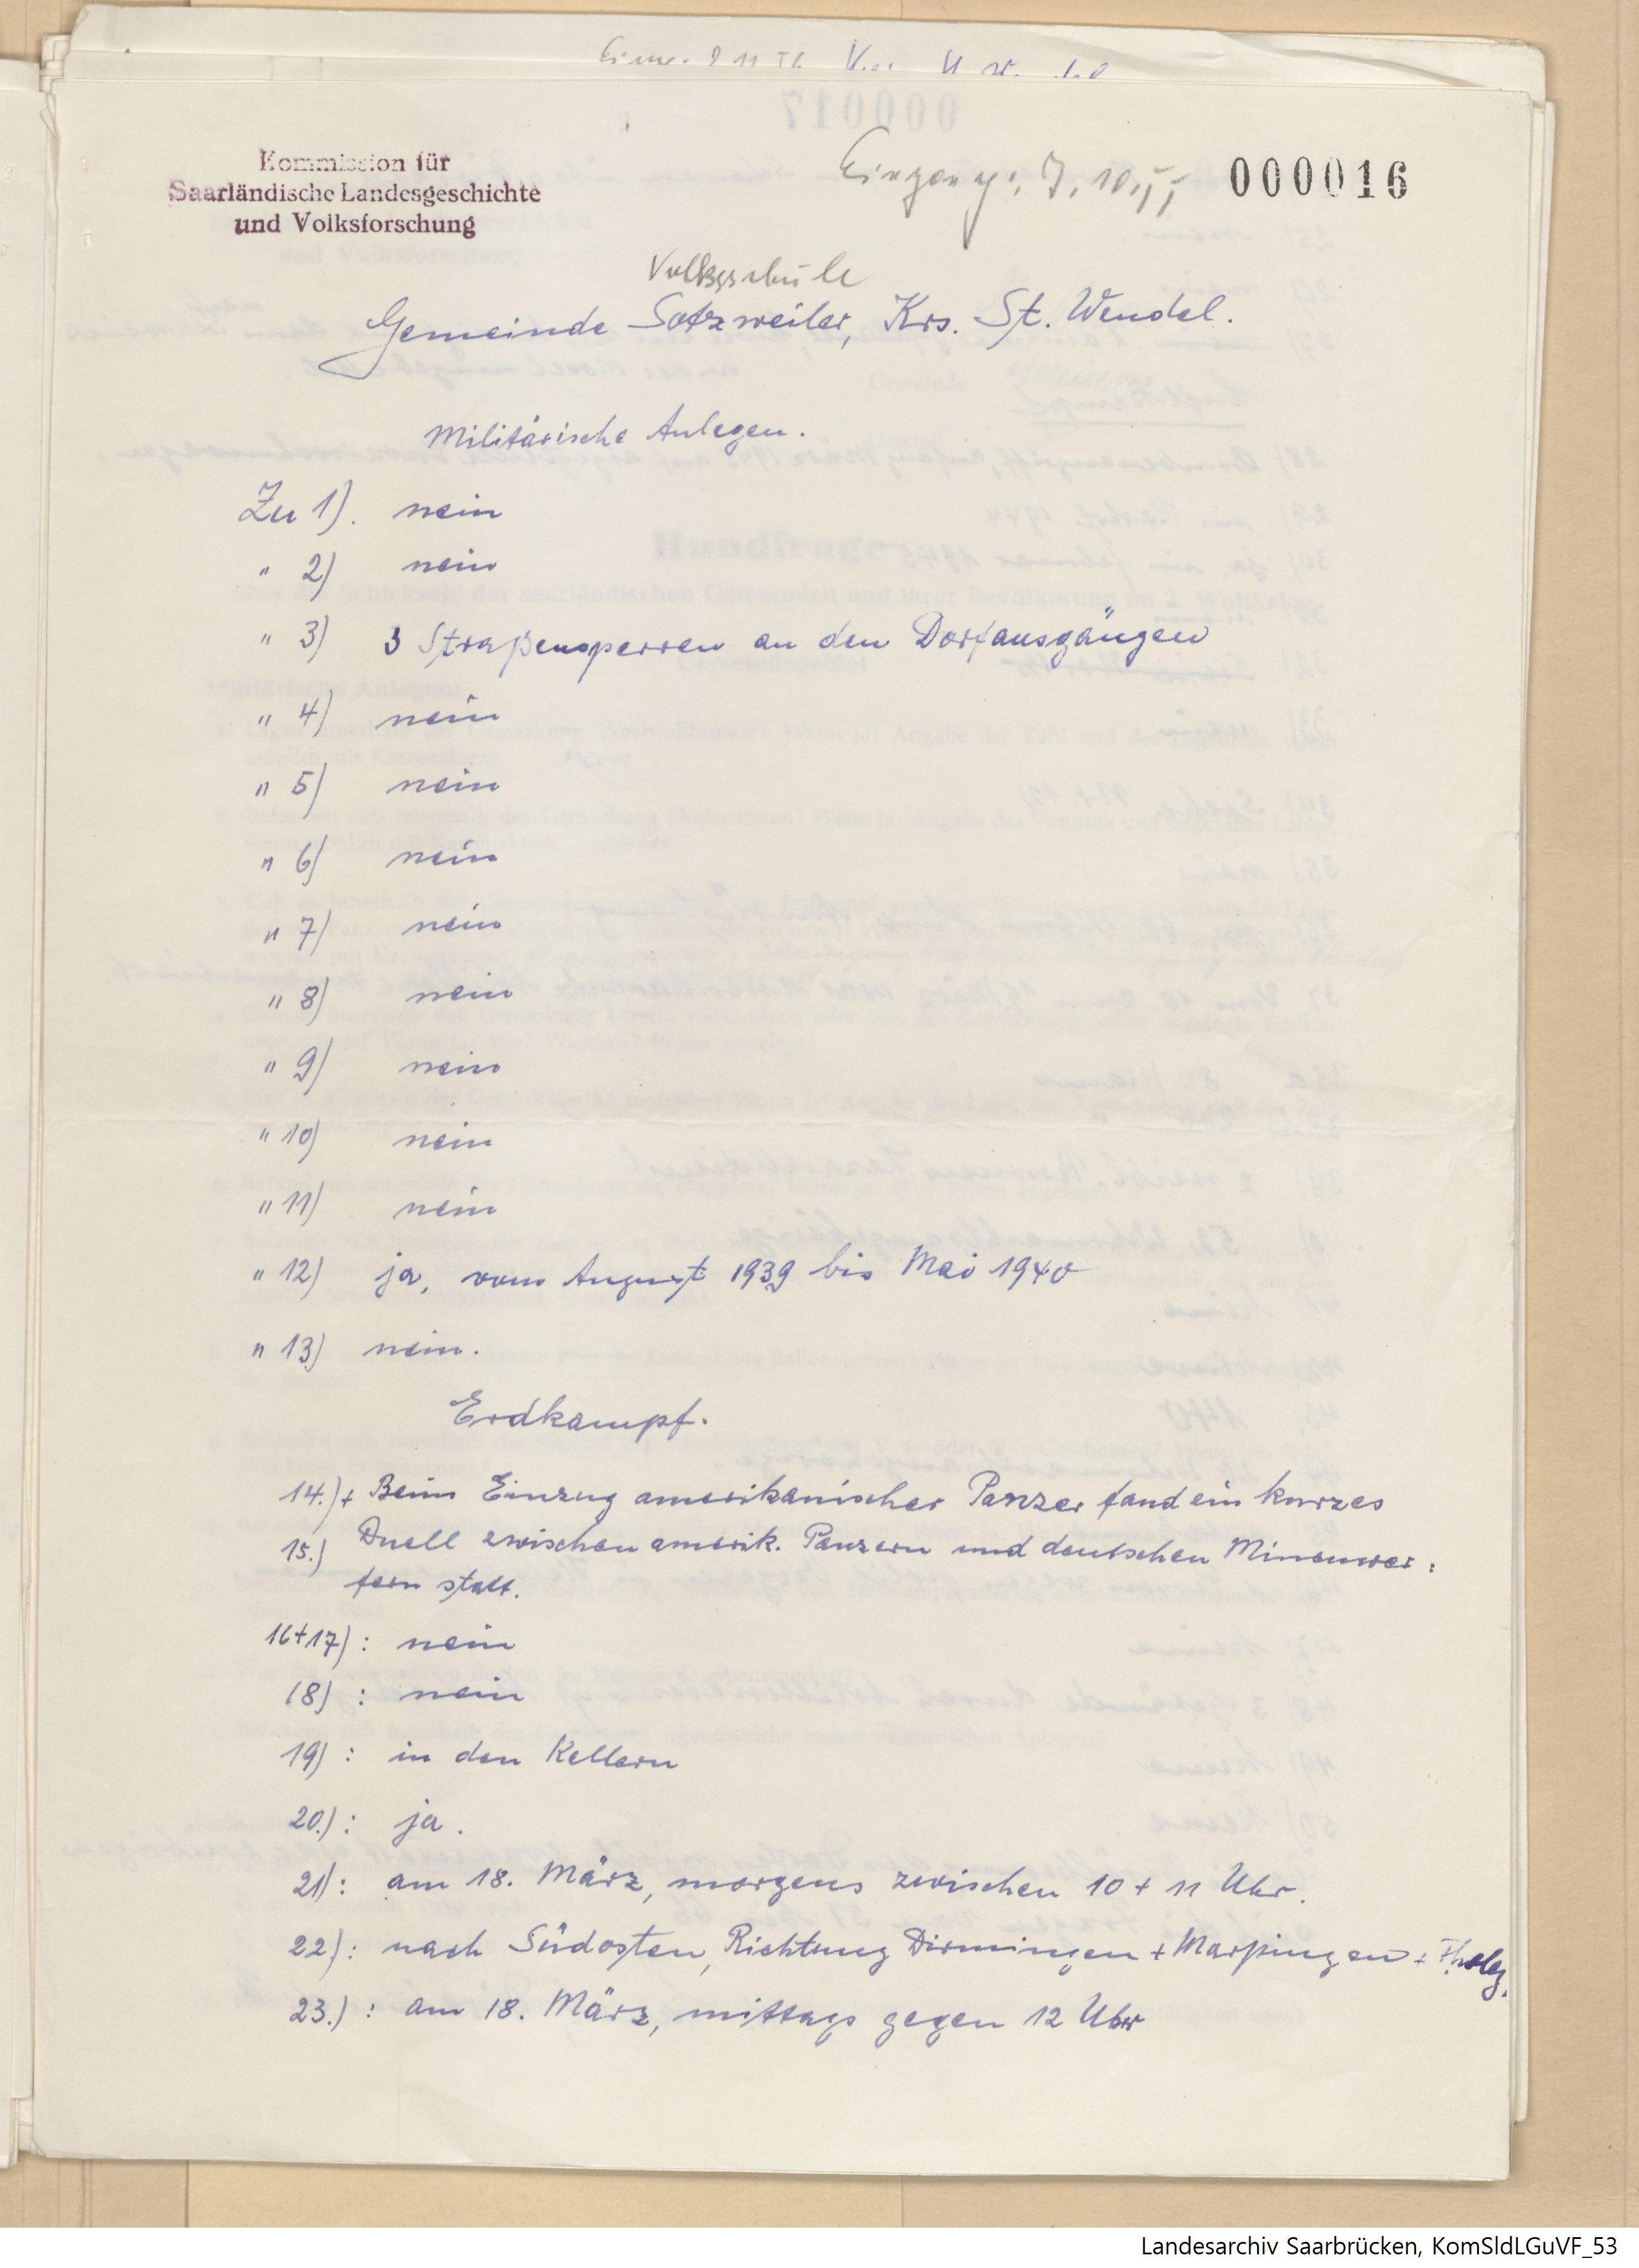 Kommission für
Saarländische Landesgeschichte
und Volksforschung
Eingang: 7.10.55
000016
Volksschule
Gemeinde Sotzweiler, Krs. St. Wendel.
Militärische Anlegen.
Zu 1). nein
" 2) nein
" 3) 3 Straßensperren an den Dorfausgängen
" 4) nein
" 5) nein
" 6) nein
" 7) nein
" 8) nein
" 9) nein
" 10) nein
" 11) nein
" 12) ja, vom August 1939 bis Mai 1940
" 13) nein.
Erdkampf.
14.) + Beim Einzug amerikanischer Panzer fand ein kurzes
15.) Duell zwischen amerik. Panzern und deutschen Minenwer:
fern statt.
16+17): nein
18) : nein
19) : in den Kellern
20.) : ja.
21) : am 18. März, morgens zwischen 10 + 11 Uhr.
22) : nach Südosten, Richtung Dirmingen + Marpingen + Tholey.
23.) : am 18. März, mittags gegen 12 Uhr
Landesarchiv Saarbrücken, KomSldLGuVF_53